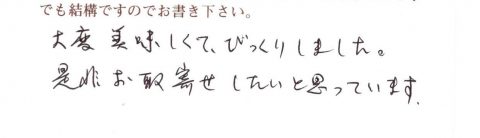 でも結構ですのでお書き下さい。
大変美味しくて、びっくりしました。
是非お取寄せしたいと思っています.